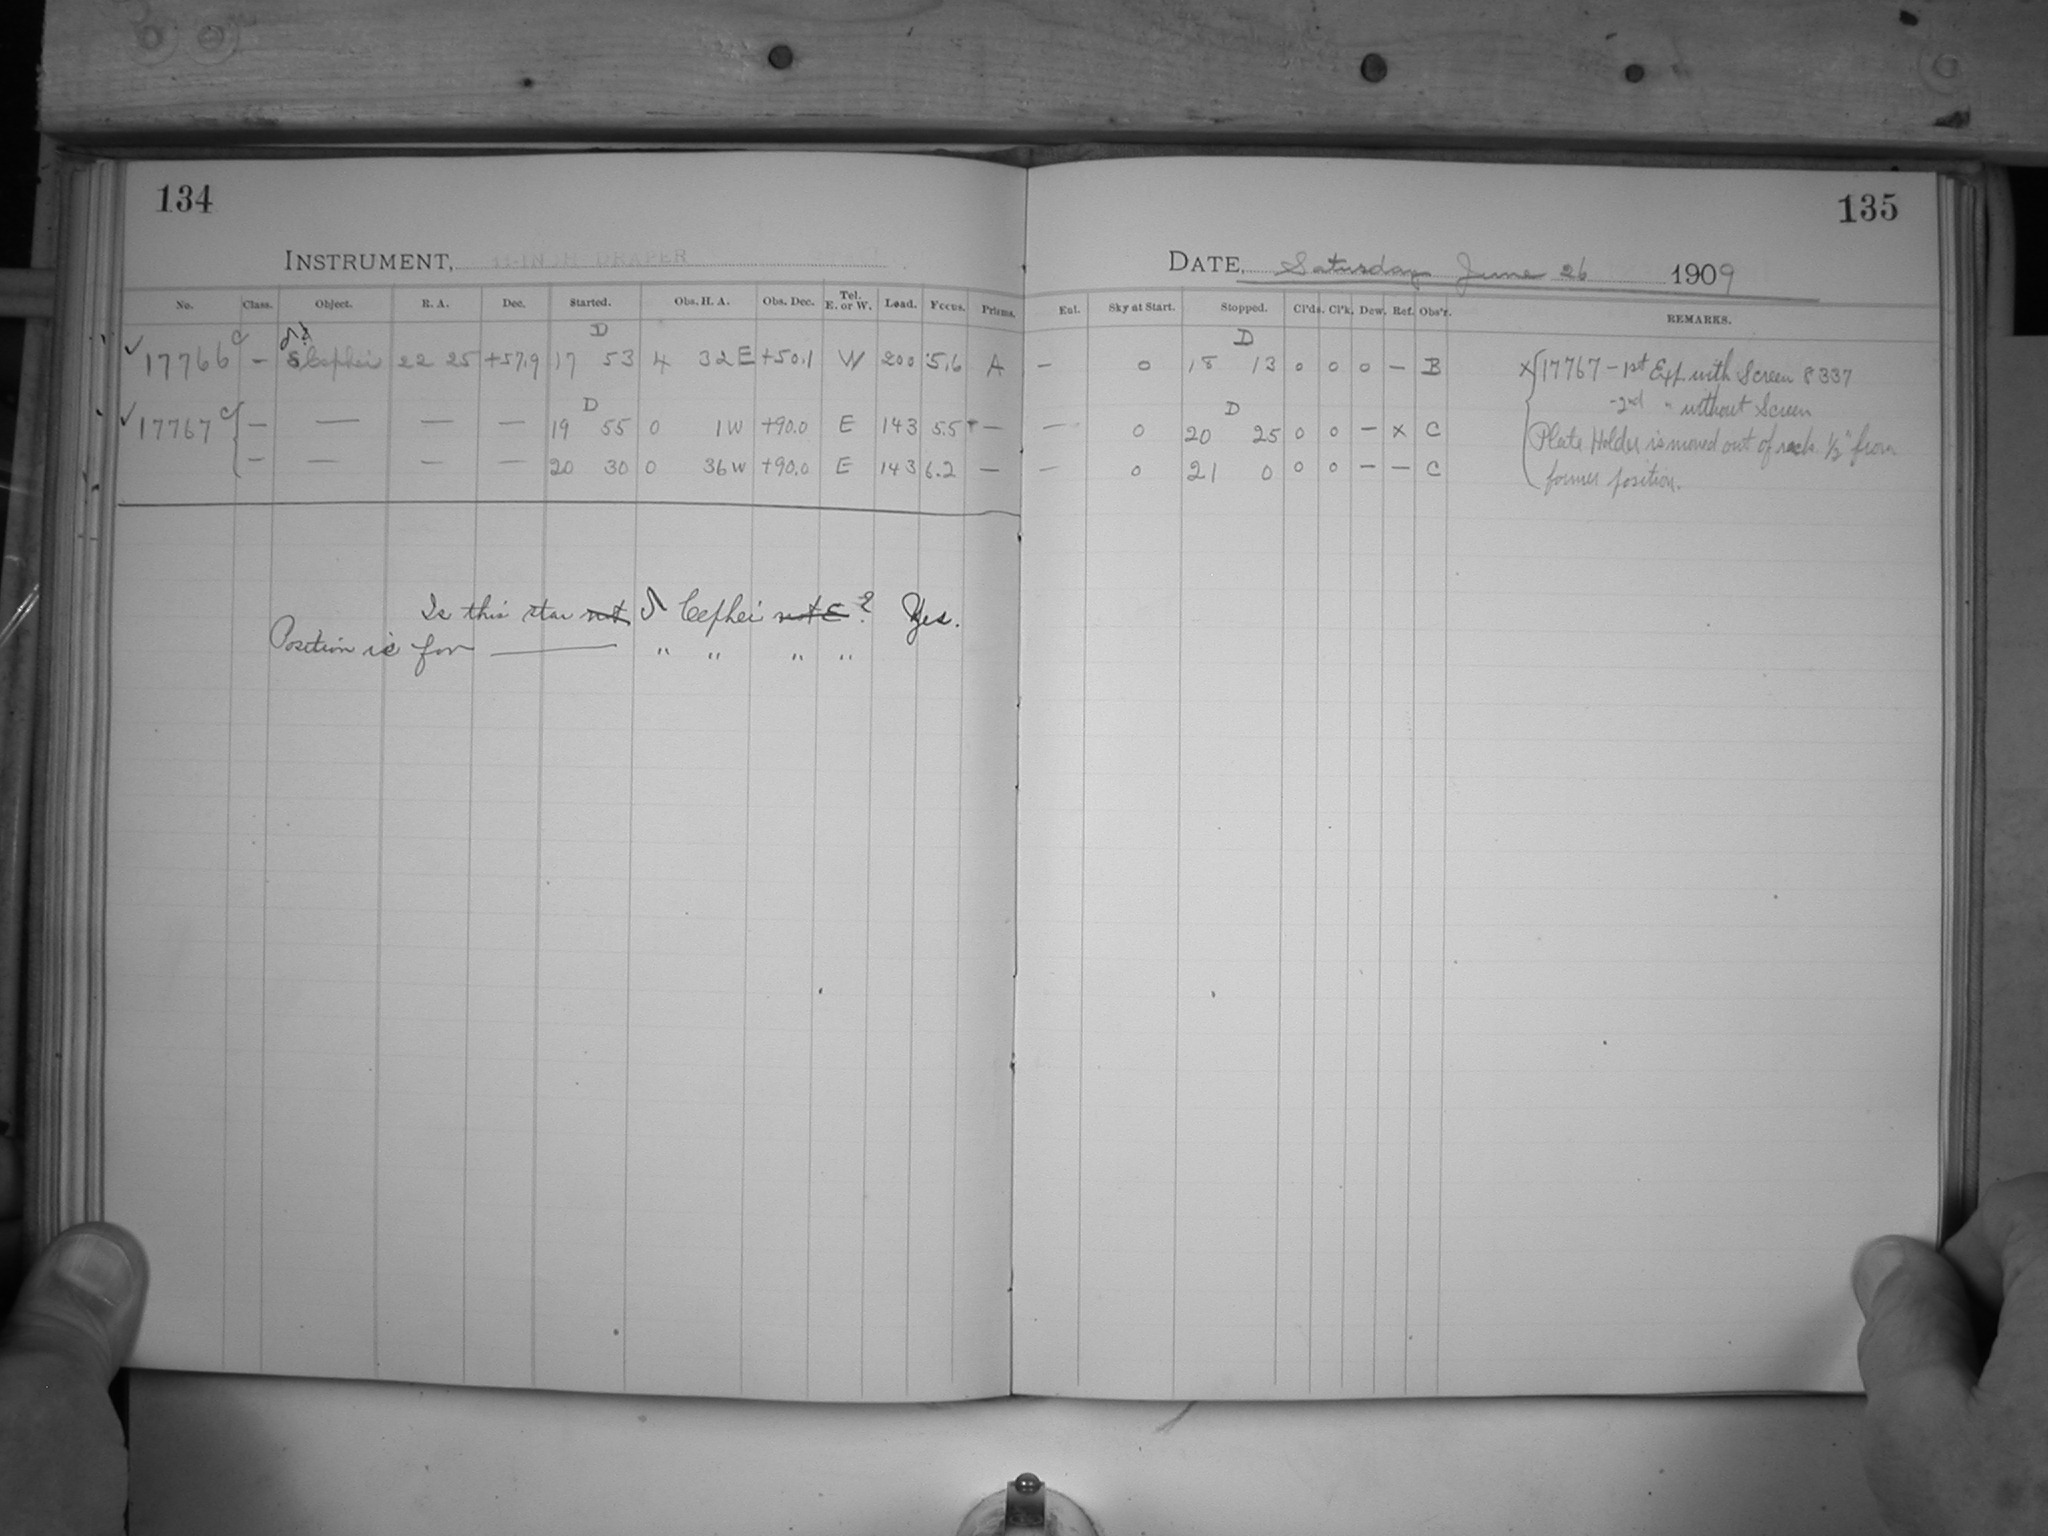 134
INSTRUMENT, 11-INCH DRAPER
No. Class. Object. R. A. Dec. Started. Obs. H. A. Obs. Dec. Tel. E. or W. Load. Focus. Prisms.
δ?
D
✓ 17766 c — Cephei 22 25 +57.9 17 53 4 32 E +50.1 W 200 5.6 A
D
✓ 17767 c { — — — — 19 55 0 1 W +90.0 E 143 5.5 —
— — — — 20 30 0 36 W +90.0 E 143 6.2 —
Is this star not δ Cephei not ε? Yes.
Position is for —— " " " "
135
DATE, Saturday June 26 1909
Ext. Sky at Start. Stopped. Cl'ds. Cl'k. Dew. Ref. Obs'r. REMARKS.
D
— 0 18 13 0 0 0 — B x { 17767 — 1st Exp. with Screen 8337
D
- 2nd " without Screen
— 0 20 25 0 0 — x C Plate Holder is moved out of rack 1/2" from
— 0 21 0 0 0 — — C former position.